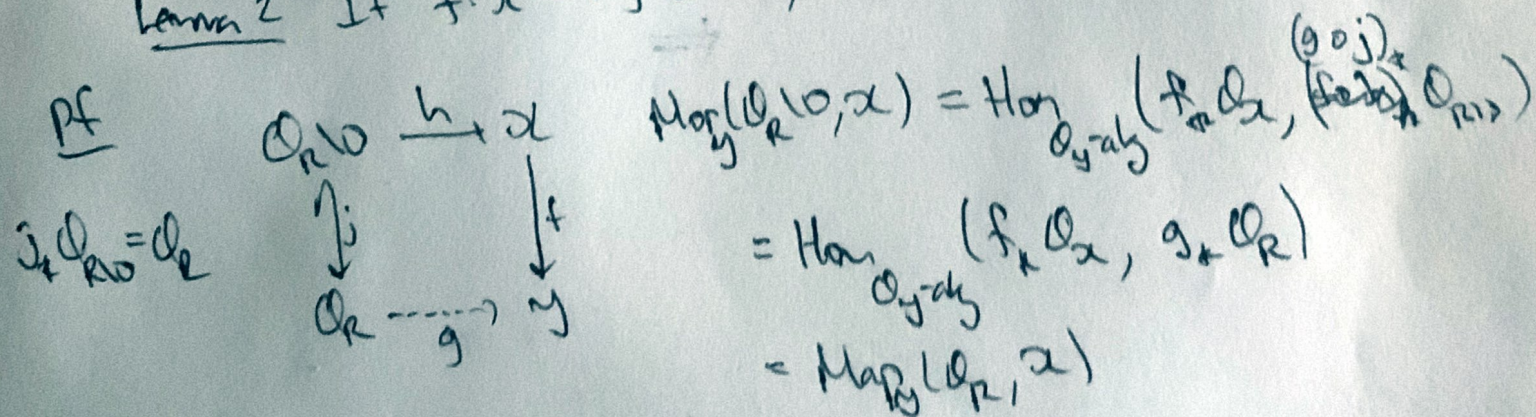 Lemma 2 If f: x
Pf
Θ_R\0 —h→ x
Mor_y(Θ_R\0, x) = Hom_{O_y-alg}(f_* O_x, (g∘j)_* O_{R\0})
j_* O_{R\0} = O_R
j
f
= Hom_{O_y-alg}(f_* O_x, g_* O_R)
Θ_R ----→ y
g
= Map_y(Θ_R, x)